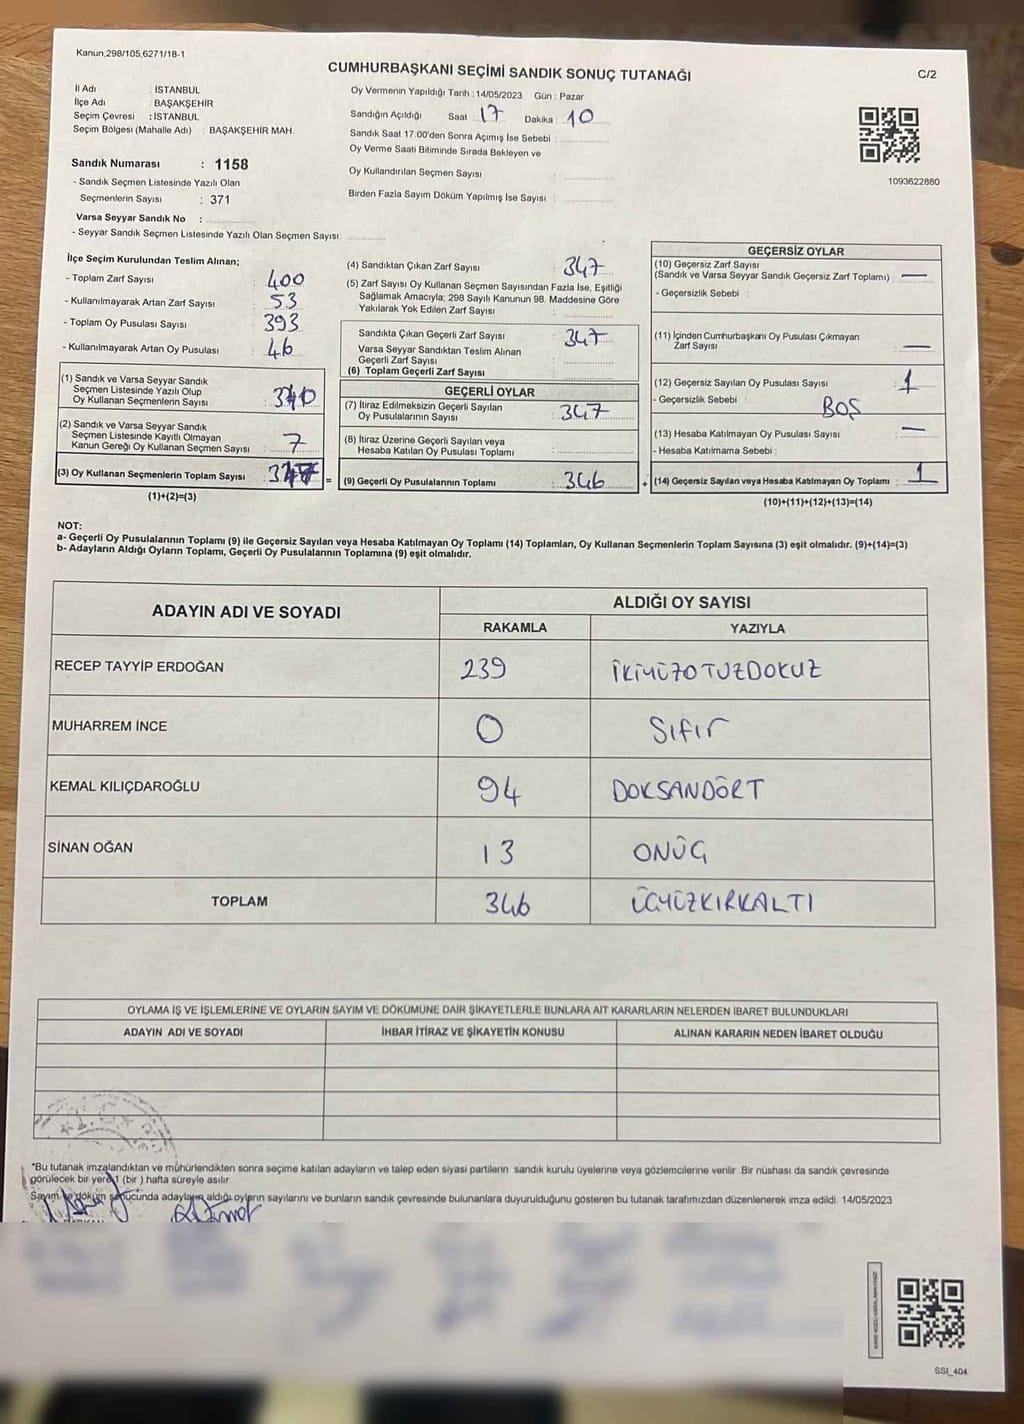 Kanun,298/105,6271/18-1
CUMHURBAŞKANI SEÇİMİ SANDIK SONUÇ TUTANAĞI
C/2
İl Adı : İSTANBUL
İlçe Adı : BAŞAKŞEHİR
Seçim Çevresi : İSTANBUL
Seçim Bölgesi (Mahalle Adı) : BAŞAKŞEHİR MAH.
Sandık Numarası : 1158
- Sandık Seçmen Listesinde Yazılı Olan
Seçmenlerin Sayısı : 371
Varsa Seyyar Sandık No :
- Seyyar Sandık Seçmen Listesinde Yazılı Olan Seçmen Sayısı:
Oy Vermenin Yapıldığı Tarih : 14/05/2023 Gün : Pazar
Sandığın Açıldığı Saat : 17 Dakika : 10
Sandık Saat 17:00'den Sonra Açımış İse Sebebi :
Oy Verme Saati Bitiminde Sırada Bekleyen ve
Oy Kullandırılan Seçmen Sayısı :
Birden Fazla Sayım Döküm Yapılmış İse Sayısı :
1093622880
İlçe Seçim Kurulundan Teslim Alınan;
- Toplam Zarf Sayısı : 400
- Kullanılmayarak Artan Zarf Sayısı : 53
- Toplam Oy Pusulası Sayısı : 393
- Kullanılmayarak Artan Oy Pusulası : 46
(1) Sandık ve Varsa Seyyar Sandık
Seçmen Listesinde Yazılı Olup
Oy Kullanan Seçmenlerin Sayısı : 340
(2) Sandık ve Varsa Seyyar Sandık
Seçmen Listesinde Kayıtlı Olmayan
Kanun Gereği Oy Kullanan Seçmen Sayısı : 7
(3) Oy Kullanan Seçmenlerin Toplam Sayısı : 347 =
(1)+(2)=(3)
(4) Sandıktan Çıkan Zarf Sayısı : 347
(5) Zarf Sayısı Oy Kullanan Seçmen Sayısından Fazla İse, Eşitliği
Sağlamak Amacıyla; 298 Sayılı Kanunun 98. Maddesine Göre
Yakılarak Yok Edilen Zarf Sayısı :
Sandıkta Çıkan Geçerli Zarf Sayısı : 347
Varsa Seyyar Sandıktan Teslim Alınan
Geçerli Zarf Sayısı :
(6) Toplam Geçerli Zarf Sayısı :
GEÇERLİ OYLAR
(7) İtiraz Edilmeksizin Geçerli Sayılan
Oy Pusulalarının Sayısı : 347
(8) İtiraz Üzerine Geçerli Sayılan veya
Hesaba Katılan Oy Pusulası Toplamı :
(9) Geçerli Oy Pusulalarının Toplamı : 346 +
GEÇERSİZ OYLAR
(10) Geçersiz Zarf Sayısı
(Sandık ve Varsa Seyyar Sandık Geçersiz Zarf Toplamı) : —
- Geçersizlik Sebebi :
(11) İçinden Cumhurbaşkanı Oy Pusulası Çıkmayan
Zarf Sayısı : —
(12) Geçersiz Sayılan Oy Pusulası Sayısı : 1
- Geçersizlik Sebebi : BOŞ
(13) Hesaba Katılmayan Oy Pusulası Sayısı : —
- Hesaba Katılmama Sebebi :
(14) Geçersiz Sayılan veya Hesaba Katılmayan Oy Toplamı : 1
(10)+(11)+(12)+(13)=(14)
NOT:
a- Geçerli Oy Pusulalarının Toplamı (9) ile Geçersiz Sayılan veya Hesaba Katılmayan Oy Toplamı (14) Toplamları, Oy Kullanan Seçmenlerin Toplam Sayısına (3) eşit olmalıdır. (9)+(14)=(3)
b- Adayların Aldığı Oyların Toplamı, Geçerli Oy Pusulalarının Toplamına (9) eşit olmalıdır.
ADAYIN ADI VE SOYADI
ALDIĞI OY SAYISI
RAKAMLA YAZIYLA
RECEP TAYYİP ERDOĞAN 239 İKİYÜZOTUZDOKUZ
MUHARREM İNCE 0 Sıfır
KEMAL KILIÇDAROĞLU 94 DOKSANDÖRT
SİNAN OĞAN 13 ONÜÇ
TOPLAM 346 ÜÇYÜZKIRKALTI
OYLAMA İŞ VE İŞLEMLERİNE VE OYLARIN SAYIM VE DÖKÜMÜNE DAİR ŞİKAYETLERLE BUNLARA AİT KARARLARIN NELERDEN İBARET BULUNDUKLARI
ADAYIN ADI VE SOYADI İHBAR İTİRAZ VE ŞİKAYETİN KONUSU ALINAN KARARIN NEDEN İBARET OLDUĞU
*Bu tutanak imzalandıktan ve mühürlendikten sonra seçime katılan adayların ve talep eden siyasi partilerin sandık kurulu üyelerine veya gözlemcilerine verilir. Bir nüshası da sandık çevresinde
görülecek bir yere 1 (bir ) hafta süreyle asılır.
Sayım ve döküm sonucunda adayların aldığı oyların sayılarını ve bunların sandık çevresinde bulunanlara duyurulduğunu gösteren bu tutanak tarafımızdan düzenlenerek imza edildi. 14/05/2023
SSI_404